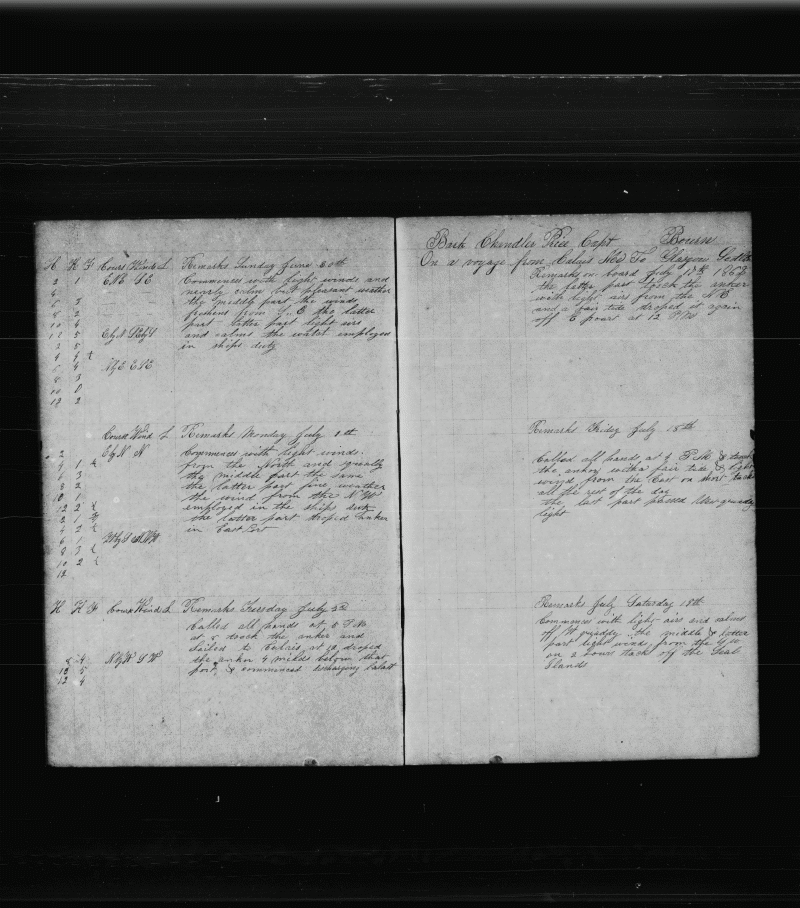 H K F Cours Winds L Remarks Sunday June 30th
2 1 ENE SE Commences with light winds and
4 nearly calm but pleasant weather
6 3 the middly part the winds
8 2 freshens from S.E the latter
10 4 part latter part light airs
11 5 EbyN SEbyS and calms the watch employed
2 5 in ships duty
4 4 ½
6 4 NbyE ENE
8 3
10 0
12 2
Cours Wind L Remarks Monday July 1th
2 EbyN N Commences with light winds.
4 1 ½ from the North and squally
6 3 the middle part the same
8 2 the latter part fine weather
10 1 the wind from the NW
12 2 ½ employed in the ships duty
2 1 the latter part droped anker
4 2 ½ in East Port
6 1 NNW
8 3 ½
10 2 ½
12
H K F Cours Winds L Remarks Tuesday July 2d
Called all hands at 5 PM
at toock the anker and
Sailed to Calais at 10 droped
8 4 NbyW SW the anker 4 milds below that
10 5 port & commenced discharging balast
12 4
Bark Chandler Price Capt Bourn
On a voyage from Calais To Glasgow
Remarks on board July 17th 1868
the latter part toock the anker
with light airs from the NE
and a fair tide droped at again
off E poart at 12 PM
Remarks Friday July 18th
Called all hands at 4 &
the anker with a fair tide & light
wind from the East on short tacks
all the rest of the day
the last part passed
light
Remarks July Saturday 18th
Commences with light airs and calms
off the middle & latter
part light wind from the
on 2 hours tack off the Seal
Ilands